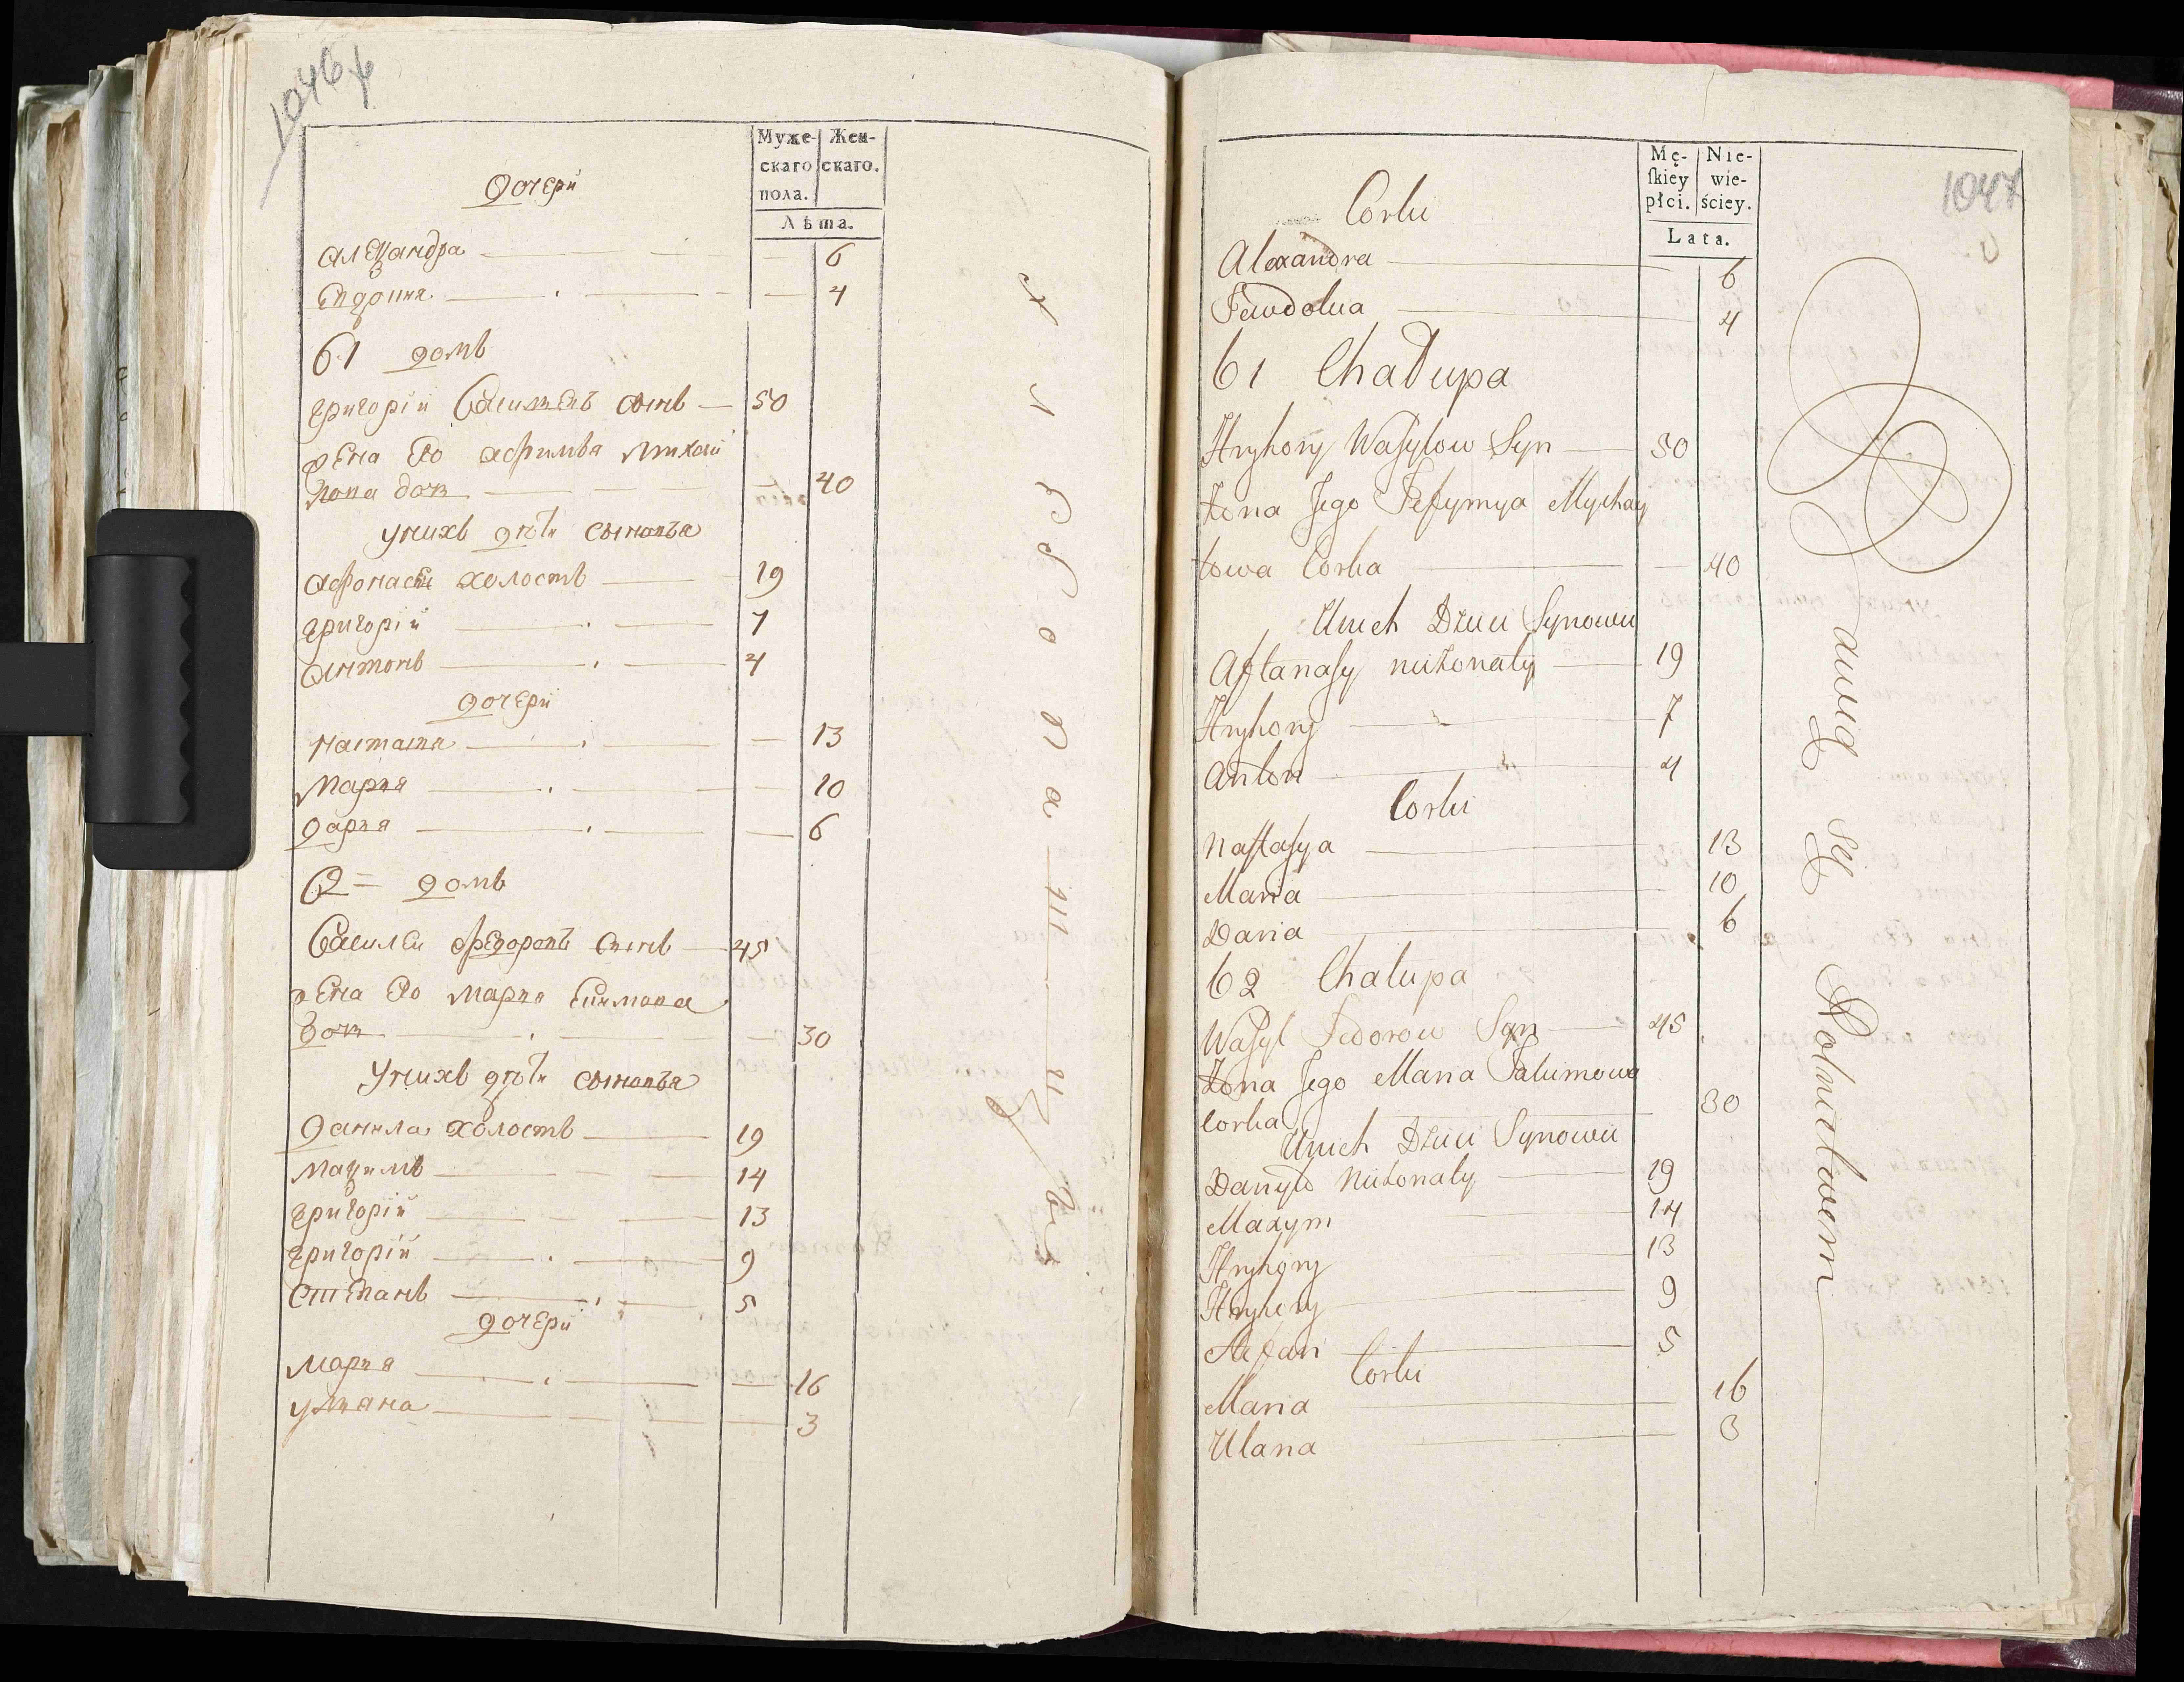 1046 об
Муже- Жен-
скаго скаго.
пола.
Лѣта.
дочери
Александра 6
Евдокия 4
61 домъ
григорій Василевъ сынъ 50
жена его афимья михай
лова дочь 40
у нихъ дѣти сыновья
афонасей холостъ 19
григорій 7
антонъ 4
дочери
настасия 13
Мария 10
дария 6
62 домъ
Василей федоровъ сынъ 45
жена его мария
дочь 30
у нихъ дѣти сыновья
данила холостъ 19
максимъ 14
григорій 13
григорій 9
степанъ 5
дочери
мария 16
ульяна 3
1047
Mę- Nie-
skiey wie-
płci. ściey.
Lata.
Corki
Alexandra 6
Jewdokia 4
61 Chałupa
Hryhory Wasylow Syn 50
Żona Jego Jefymya Mychay
łowa Corka 40
Unich Dzieci Synowie
Aftanasy nieżonaty 19
Hryhory 7
Anton 4
Corki
Nastasya 13
Maria 10
Daria 6
62 Chałupa
Wasyl Fedorow Syn 45
Żona Jego Maria
Corka 30
Unich Dzieci Synowie
Danyło Nieżonaty 19
Maxym 14
Hryhory 13
Hryhory 9
Stefan 5
Corki
Maria 16
Ulana 3
Bawią Się Rolnictwem